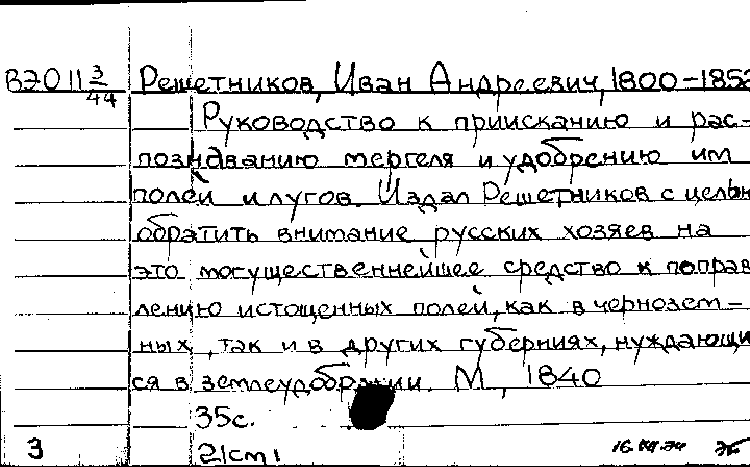 В20 11 3/44 Решетников, Иван Андреевич, 1800-1852
Руководство к приисканию и рас-
познаванию мергеля и удобрению им
полей и лугов. Издал Решетников с целью
обратить внимание русских хозяев на
это могущественнейшее средство к поправ
лению истощенных полей, как в чернозем-
ных, так и в других губерниях, нуждающи
ся в землеудобрении. М., 1840
35с.
21cm
3